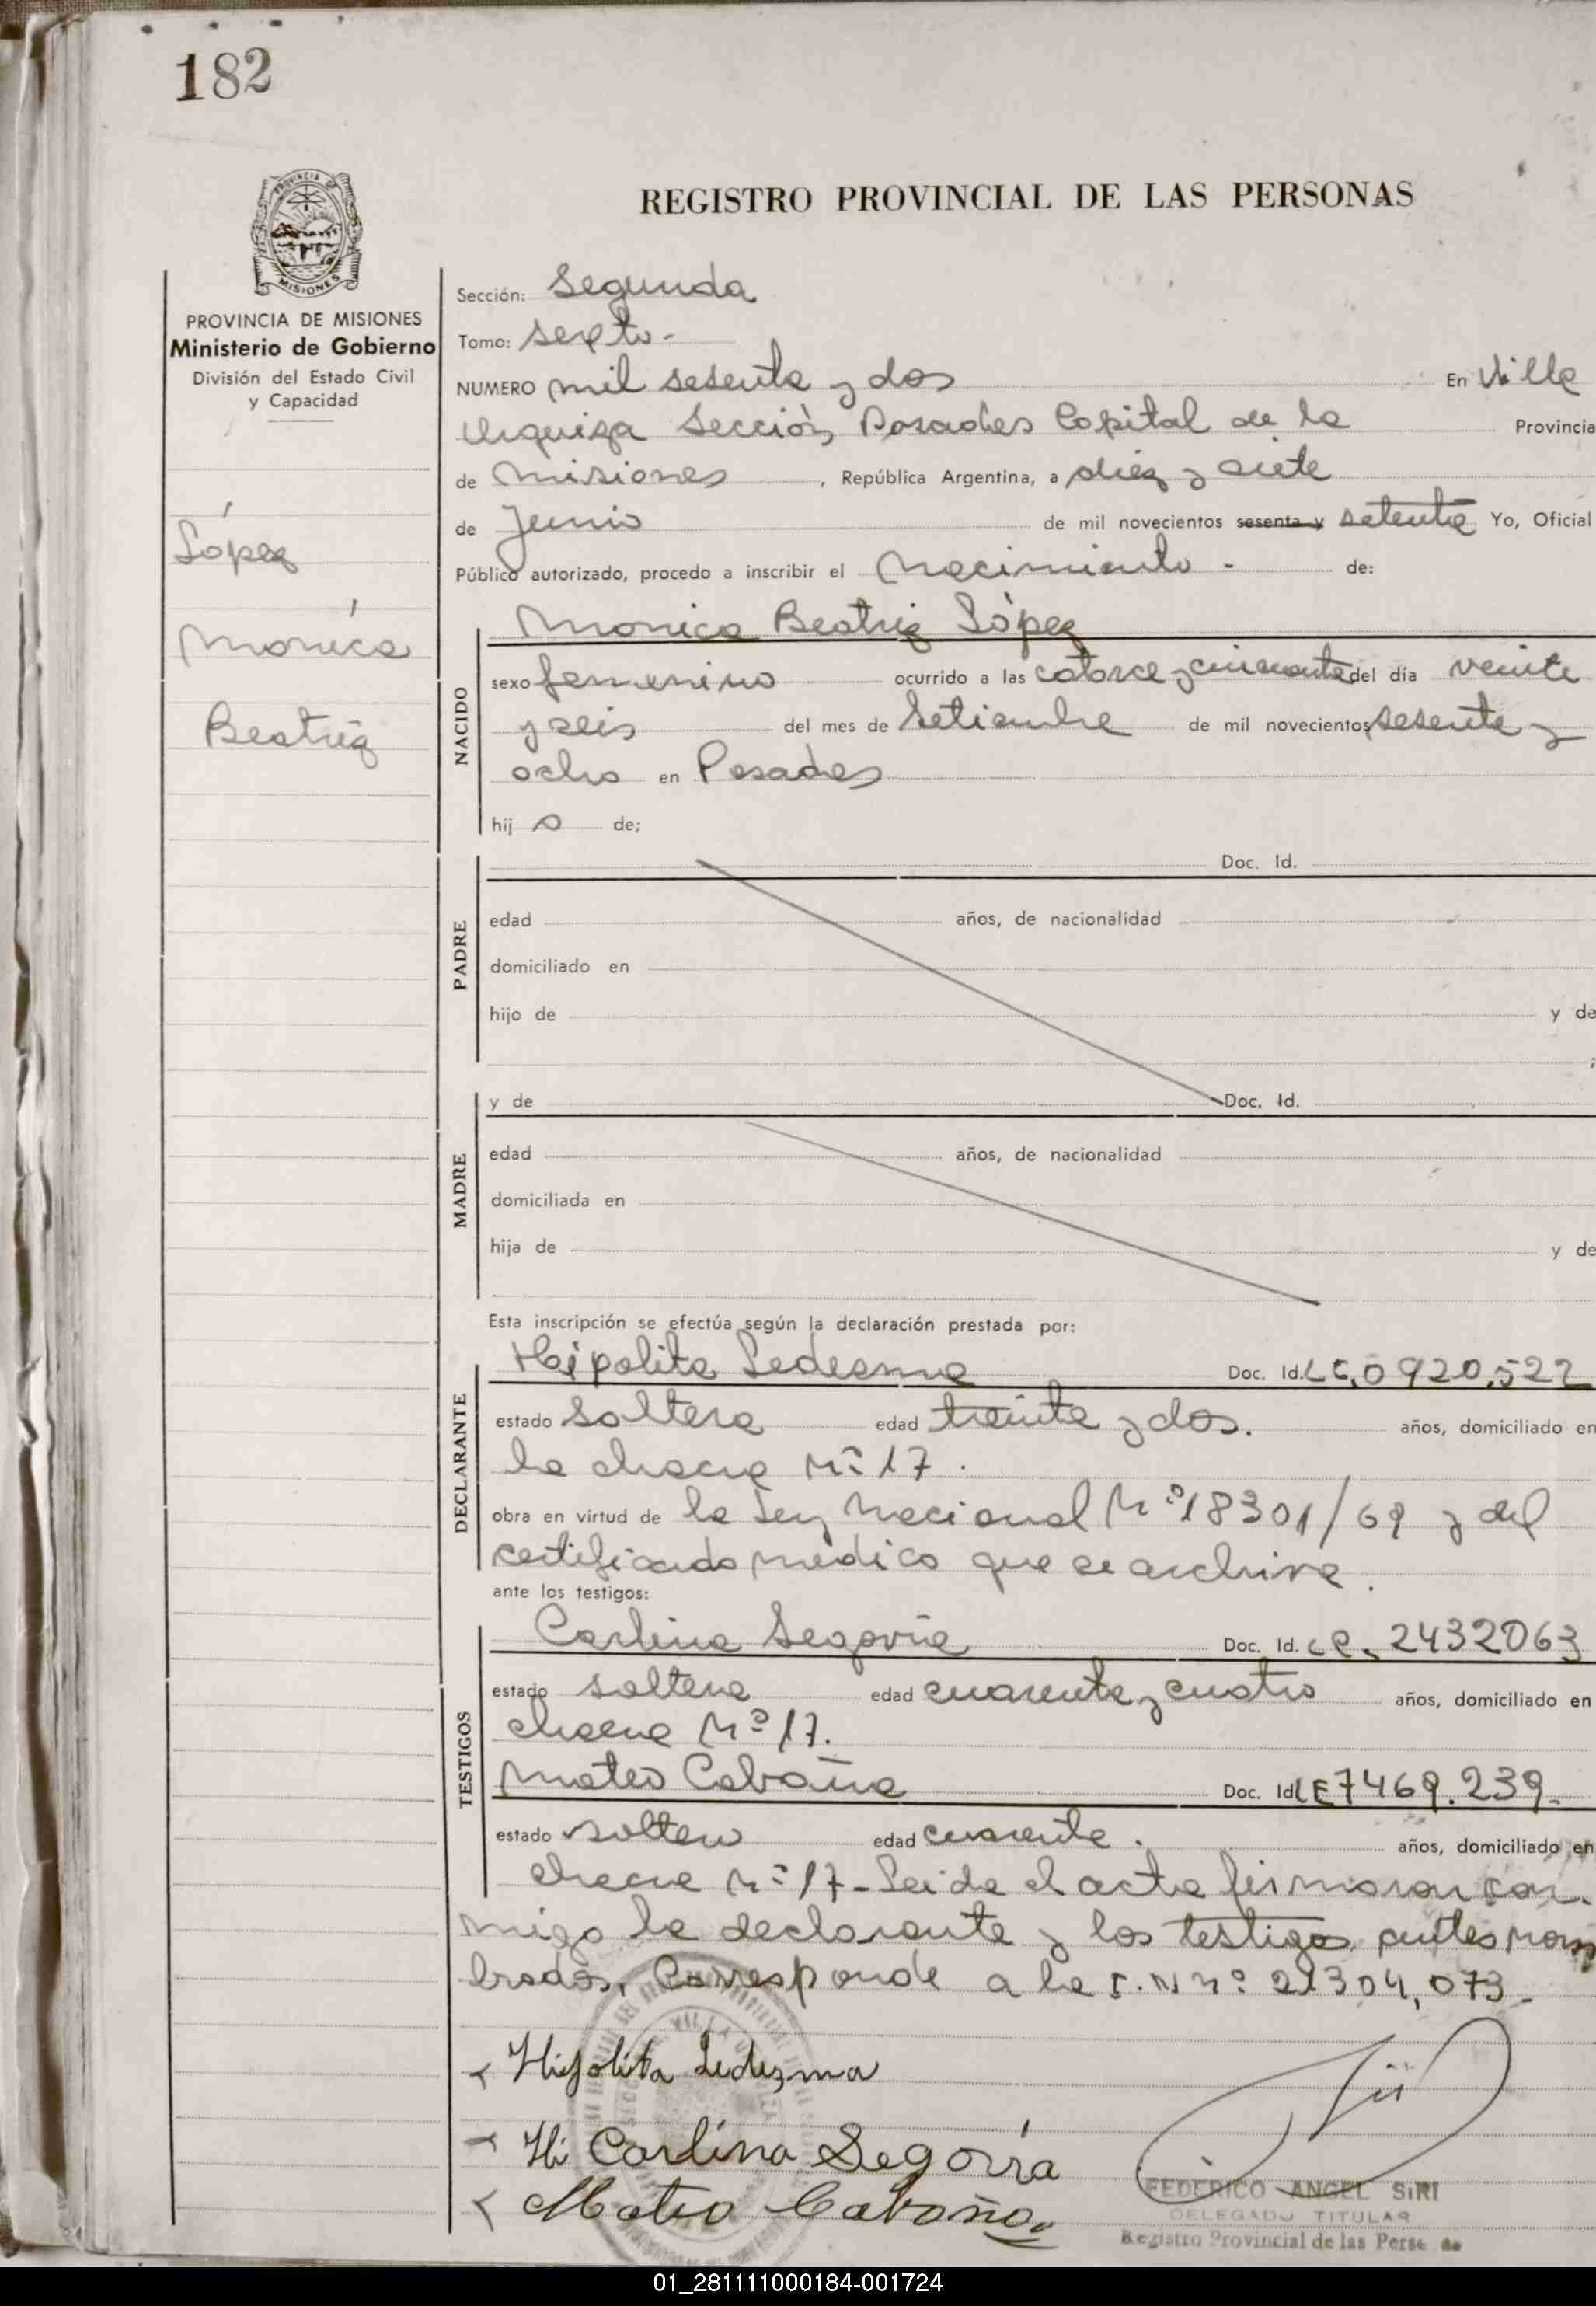 182
PROVINCIA DE
MISIONES
PROVINCIA DE MISIONES
Ministerio de Gobierno
División del Estado Civil
y Capacidad
López
Mónica
Beatriz
REGISTRO PROVINCIAL DE LAS PERSONAS
Sección: Segunda
Tomo: sexto.-
NUMERO mil sesenta y dos En Villa
Urquiza Sección Posadas Capital de la Provincia
de Misiones, República Argentina, a diez y siete
de Junio de mil novecientos sesenta y setenta Yo, Oficial
Público autorizado, procedo a inscribir el Nacimiento - de:
NACIDO
Monica Beatriz López
sexo femenino ocurrido a las catorce y cincuenta del día veinte
y seis del mes de Setiembre de mil novecientos sesenta y
ocho en Posadas
hij a de;
PADRE
Doc. Id.
edad años, de nacionalidad
domiciliado en
hijo de y de
;
MADRE
y de Doc. Id.
edad años, de nacionalidad
domiciliada en
hija de y de
Esta inscripción se efectúa según la declaración prestada por:
DECLARANTE
Hipolita Ledesma Doc. Id. LC. 0920.522
estado soltera edad treinta y dos. años, domiciliado en
la chacra Nº 17.
obra en virtud de la Ley Nacional Nº 18301/69 y del
certificado médico que se archiva.
ante los testigos:
TESTIGOS
Carlina Segovia Doc. Id. LC. 2432063
estado soltera edad cuarenta y cuatro años, domiciliado en
chacra Nº 17.
Mateo Cabaña Doc. Id LE 7469.239.
estado soltero edad cuarenta. años, domiciliado en
chacra Nº 17 - Leida el acta firmaron con-
migo la declarante y los testigos antes nom
brados. Corresponde a la I.N nº 21304,073-
Hipolita Ledezma
Hi Carlina Segovia
Mateo Cabaña
FEDERICO ANGEL SIRI
DELEGADO TITULAR
Registro Provincial de las Perso
01_281111000184-001724